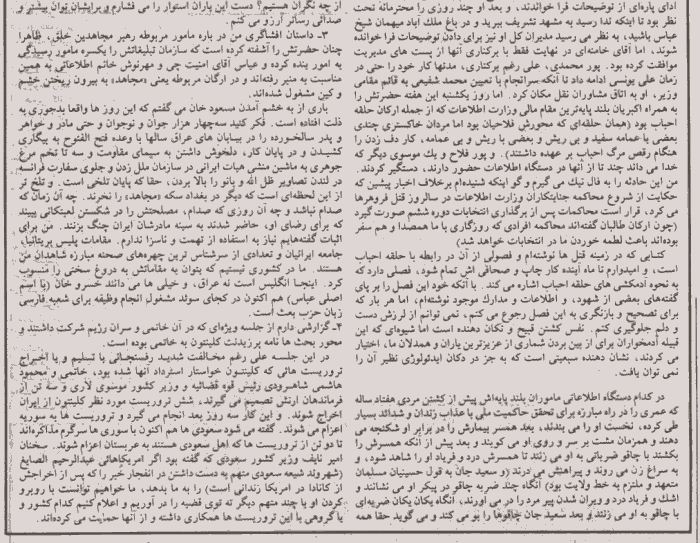 ادای پاره‌ای از توضیحات فرا خواندند، و بعد او چند روزی را محترمانه تحت
نظر بود تا اینکه ندا رسید به مشهد تشریف ببرید و در باغ ملك آباد میهمان شیخ
عباس باشید، به نظر می رسید مدیران کل او نیز برای دادن توضیحات فرا خوانده
شوند، اما آقای خامنه‌ای در نهایت فقط با برکناری آنها از پست های مدیریت
موافقت کرده بود. پور محمدی، علی رغم برکناری، مدتها کار خود را حتی در
زمان علی یونسی ادامه داد تا آنکه سرانجام با تعیین محمد شفیعی به قائم مقامی
وزیر، او به اتاق مشاوران نقل مکان کرد. اما روز یکشنبه این هفته حضرتش را
به همراه اکبریان بلند پایه‌ترین مقام مالی وزارت اطلاعات که از جمله ارکان حلقه
احباب بود (همان حلقه‌ای که محورش فلاحیان بود اما مردان خاکستری چندی
بعضی با عمامه سفید و بی ریش و بعضی با ریش و بی عمامه، کار دف زدن را
هنگام رقص مرگ احباب بر عهده داشتند). و پور فلاح و یك موسوی دیگر که
خدا می داند چند تا از آنها در دستگاه اطلاعات حضور دارند، دستگیر کردند.
من این حادثه را به فال نیك می گیرم و گو اینکه شنیده‌ام برخلاف اخبار پیشین که
حکایت از شروع محاکمه جنایتکاران وزارت اطلاعات در سالروز قتل فروهرها
می کرد، قرار است محاکمات پس از برگذاری انتخابات دوره ششم صورت گیرد
(چون ارکان طالبان گفته‌اند محاکمه افرادی که روزگاری با ما همصدا و هم سفر
بوده‌اند باعث لطمه خوردن ما در انتخابات خواهد شد)
کتـابی که در زمینه قتل ها نوشته‌ام و فصولی از آن در رابطه با حلقه احباب
است، و امیدوارم تا ماه آینده کار چاپ و صحافی اش تمام شود، فصلی دارد که
به نحوه آدمکشی های حلقه احباب اشاره می کند. با آنکه خود این فصل را بر پای
گفته‌های بعضی از شهود، و اطلاعات و مدارك موجود نوشته‌ام، اما هر بار که
برای تصحیح و بازنگری به این فصل رجوع می کنم، نمی توانم از لرزش دست
و دلم جلوگیری کنم. نفس کشتن قبیح و تکان دهنده است اما شیوه‌ای که این
قبیله آدمخواران برای از بین بردن شماری از عزیزترین یاران و همدلان ما، اختیار
می کردند، نشان دهنده سبعیتی است که به جز در دکان ایدئولوژی نظیر آن را
نمی توان یافت.
در کدام دستگاه اطلاعاتی ماموران بلند پایه‌اش پیش از کشتن مردی هفتاد ساله
که عمری را در راه مبارزه برای تحقق حاکمیت ملی با عذاب زندان و شدائد بسیار
طی کرده، نخست او را می بندند، بعد همسر بیمارش را در برابر او شکنجه می
دهند و همزمان مشت بر سر و روی او می کوبند و بعد پیش از آنکه همسرش را
بکشند با چاقو ضرباتی به او می زنند تا همسرش درد و فریاد او را شاهد شود، و
به سراغ زن می روند و پیراهنش می درند (و سعید جان به قول حسینیان مسلمان
متعهد و ملتزم به خط ولایت بود) آنگاه چند ضربه چاقو در پیکر او می نشانند و
اشك و فریاد درد و ویران شدن پیر مرد را در می آورند، آنگاه یکان یکان ضربه‌ای
با چاقو به او می زنند و بعد سعید جان چاقوها را بو می کند و می گوید حقا همه
از چه نگران هستیم؟ دست این یاران استوار را می فشارم و برایشان توان بیشتر و
صدائی رساتر آرزو می کنم.
۳ـ داستان افشاگری من در باره مامور مربوطه رهبر مجاهدین خلق، ظاهرا
چنان حضرتش را آشفته کرده است که سازمان تبلیغاتش را یکسره مامور رسیدگی
به امور بنده کرده و عباس آقای امنیت چی و مهرنوش خانم اطلاعاتی به همین
مناسبت به منبر رفته‌اند و در ارگان مربوطه یعنی «مجاهد» به بیرون ریختن خشم
و کین مشغول شده‌اند.
باری از به خشم آمدن مسعود خان می گفتم که این روز ها واقعا بدجوری به
ذلت افتاده است. فکر کنید سه‌چهار هزار جوان و نوجوان و حتی مادر و خواهر
و پدر سالخـورده را در بیـابان های عراق سالها با وعده فتح الفتوح به بیگاری
کشیـدن و در پایان کار، دلخوش داشتن به سیمای مقاومت و سه تا تخم مرغ
جوهری به ماشین منشی هیات ایرانی در سازمان ملل زدن و جلوی سفارت فرانسه
در لندن تصاویر ظل الله و بانو را بالا بردن، حقا که پایان تلخی است. و تلخ تر
از این لحظه‌ای است که دیگر در بغداد سکه «مجاهد» را نخرند. چه آن زمان که
صدام نباشد و چه آن روزی که صدام، مصلحتش را در شکستن لعبتکانی ببیند
که برای رضای او، حاضر شدند به سینه مادرشان ایران چنگ بزنند. من برای
اثبات گفته‌هایم نیاز به استفاده از تهمت و ناسزا ندارم. مقامات پلیس بریتانیا،
جامعه ایرانیان و تعدادی از سرشناس ترین چهره‌های صحنه مبارزه شاهدان من
هستند. ما در کشوری نیستیم که بتوان به مقاماتش به دروغ سخنی را منسوب
کرد. اینجـا انگلیس است نه عراق، و خیلی ها می دانند خسرو خان (با اسم
اصلی عباس) هم اکنون در کجای سوئد مشغول انجام وظیفه برای شعبه فارسی
زبان حزب بعث است.
۴ـ گزارشی دارم از جلسه ویژه‌ای که در آن خاتمی و سران رژیم شرکت داشتند و
محور بحث ها نامه پرزیدنت کلینتون به خاتمی بوده است.
در این جلسـه علی رغم مخـالفت شدیـد رفسنجـانی با تسلیم و یا اخـراج
تروریست هائی که کلینتـون خواستار استرداد آنها شده بود، خاتمی و محمود
هاشمی شاهـرودی رئیس قوه قضائیه و وزیر کشور موسوی لاری و سه تن از
فرماندهان ارتش تصمیم می گیرند، شش تروریست مورد نظر کلینتون از ایران
اخراج شوند. و این کار سه روز بعد انجام می گیرد و تروریست ها به سوریه
اعزام می شوند. گفته می شود سعودی ها هم اکنون با سوری ها سرگرم مذاکره‌اند
تا دو تن از تروریست ها که اهل سعودی هستند به عربستان اعزام شوند. سخنان
امیر نایف وزیر کشور سعودی که گفته بود اگر امریکاهائی عبدالرحیم الصایغ
(شهروند شیعه سعودی متهم به دست داشتن در انفجار خبر را که پس از اخراجش
از کانادا در امریکا زندانی است) را به ما بدهد، ما خواهیم توانست با روبرو
کردن او با چند متهم دیگر ته توی قضیه را در آوریم و اعلام کنیم کدام کشور و
یا گروهی با این تروریست ها همکاری داشته و از آنها حمایت می کرده‌اند.